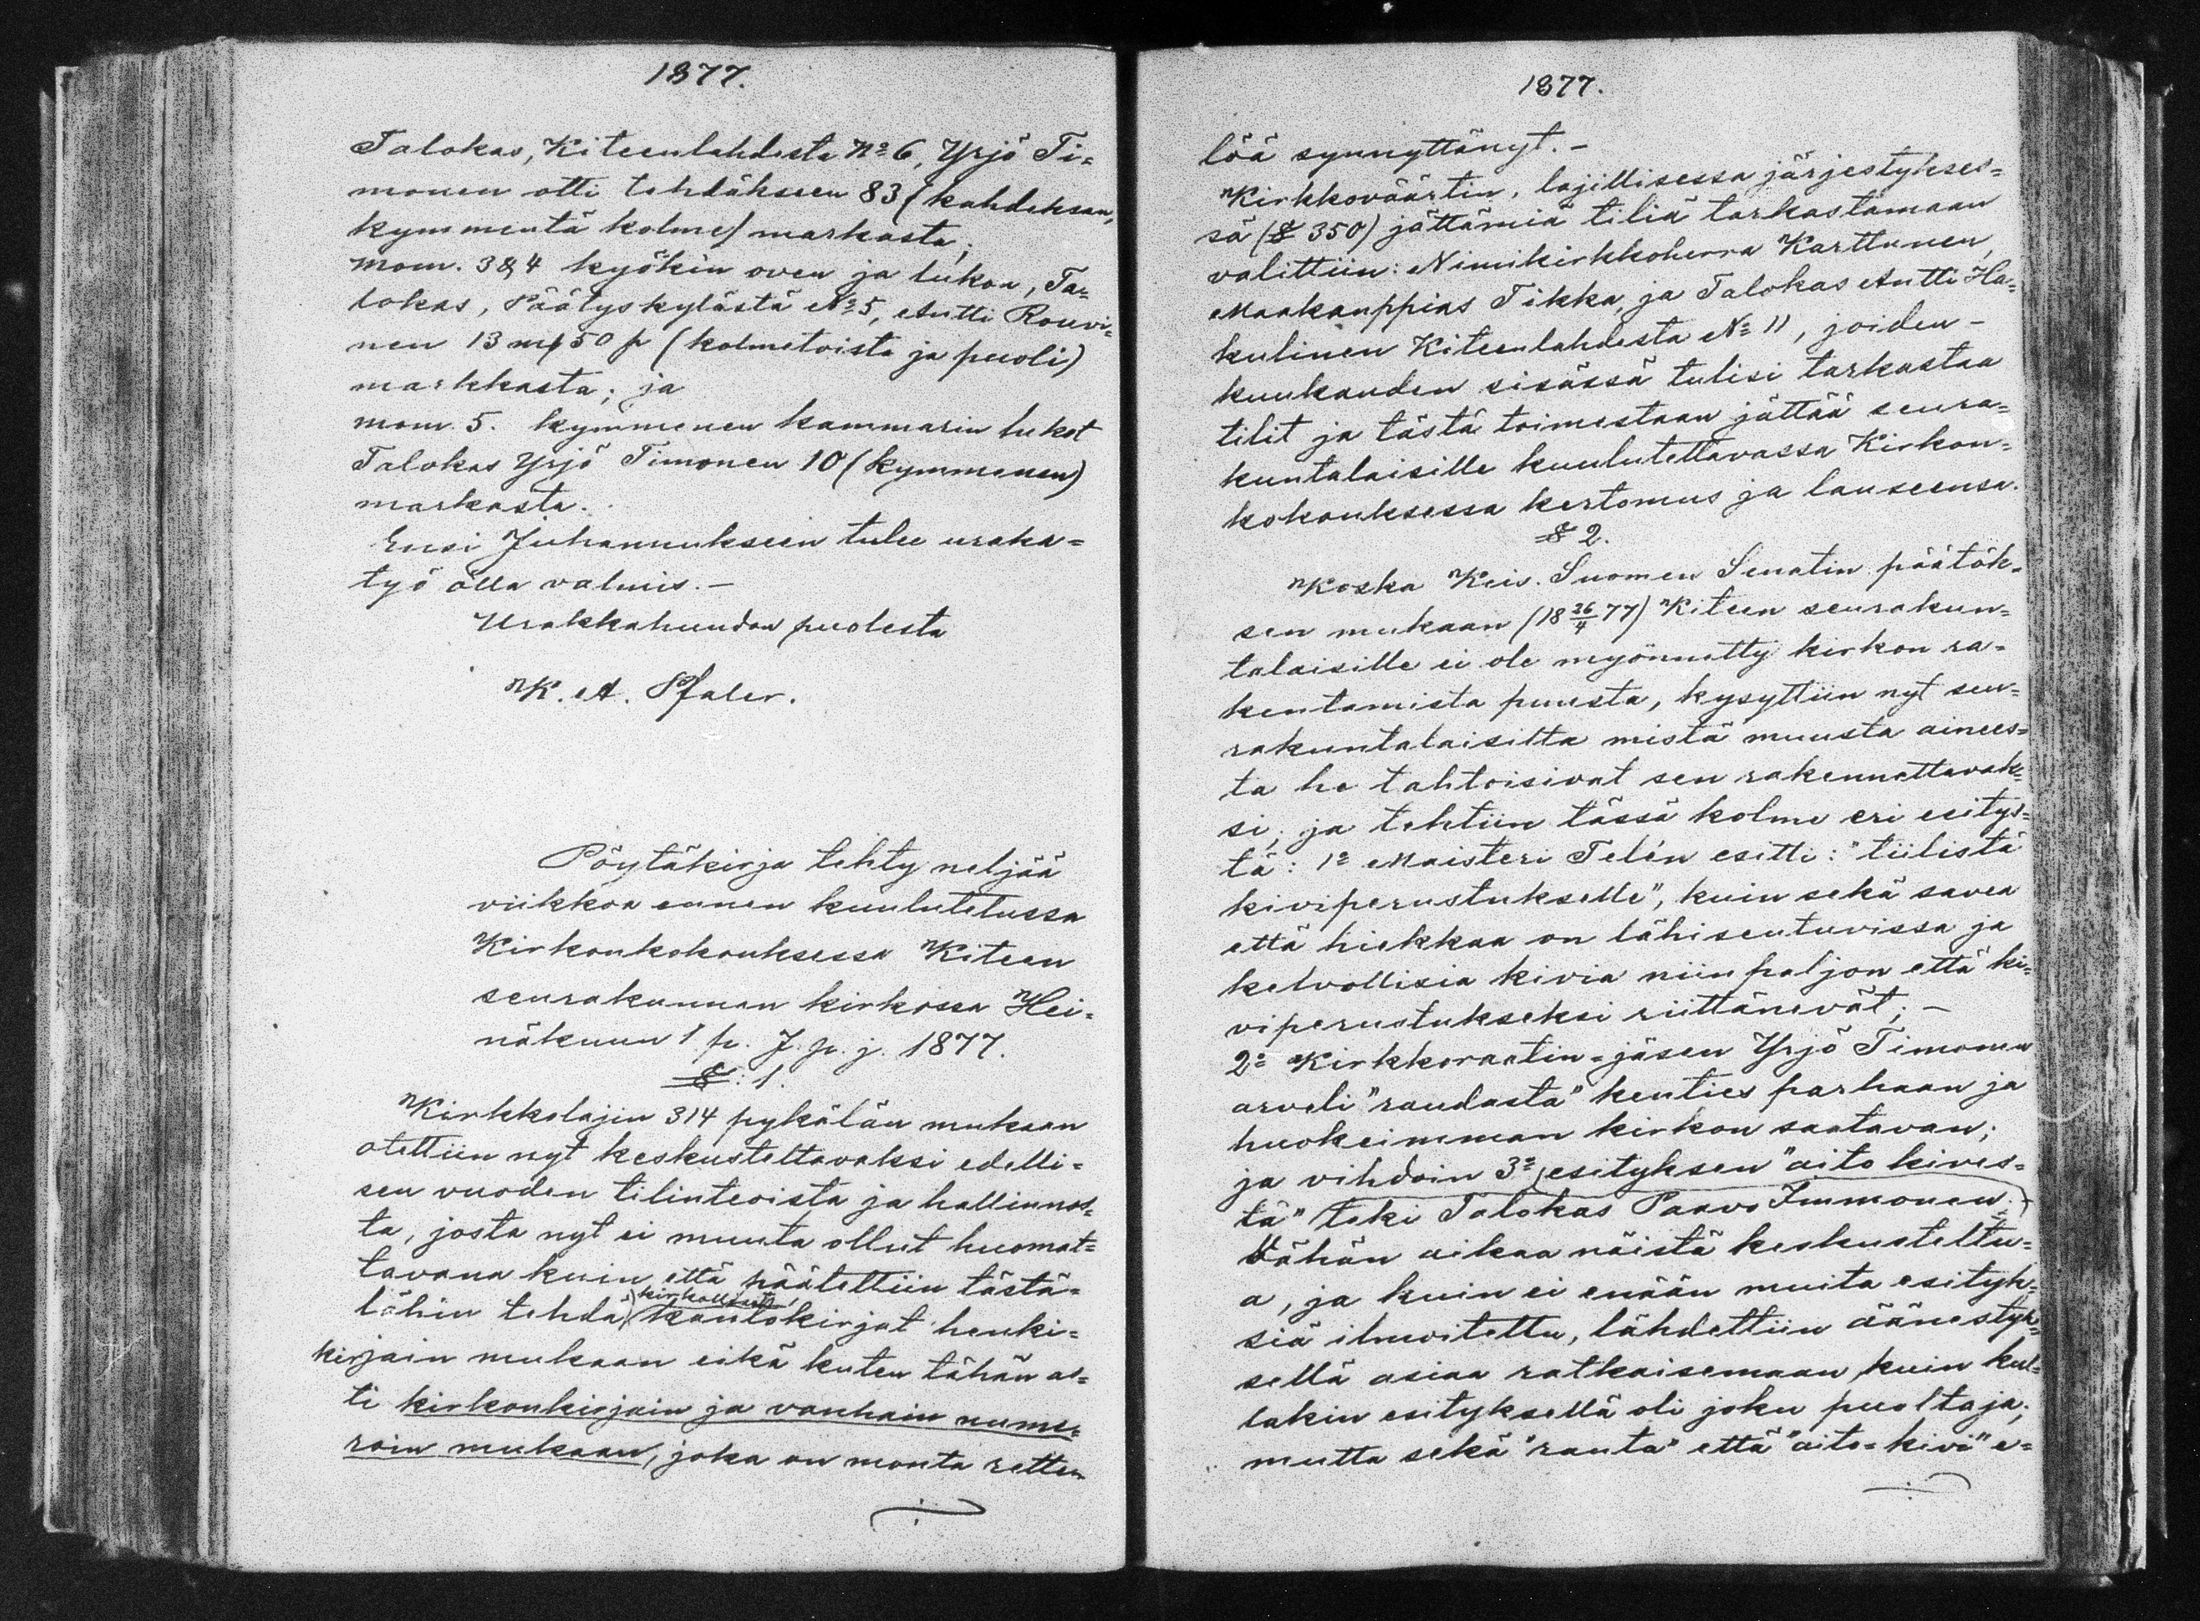 1877.
Talokas, Kiteenlahdesta No 6, Yrjö Ti=
monen otti tehdäkseen 83 (kahdeksan,
kymmentä kolme) markasta;
mom. 3 & 4 kyökin oven ja lukon, Ta=
lokas, Päätyskylästä No 5, Antti Rouvi=
nen 13 mk 50 p (kolmetoista ja puoli)
markkasta; ja
mom. 5. kymmenen kammarin lukot
Talokas Yrjö Timonen 10 (kymmenen)
markasta.
Ensi Juhannukseen tulee uraka=
työ olla valmis. –
Urakkahuudon puolesta
K. A. Pfaler.
Pöytäkirja tehty neljää
viikkoa ennen kuulutetussa
Kirkonkokouksessa Kiteen
seurakunnan kirkossa Hei=
näkuun 1 p. J. p. j. 1877.
§: 1.
Kirkkolajin 314 pykälän mukaan
otettiin nyt keskusteltavaksi edelli=
sen vuoden tilinteoista ja hallinnos=
ta, josta nyt ei muuta ollut huomat=
tavana kuin että päätettiin tästä=
kirkolliset
lähin tehdä kantokirjat henki=
kirjain mukaan eikä kuten tähän as=
ti kirkonkirjain ja vanhain nume=
roin mukaan, joka on monta rette=
1877.
löä synnyttänyt. –
Kirkkoväärtin, lajillisessa järjestykses=
sä (§ 350) jättämiä tiliä tarkastamaan
valittiin: Nimikirkkoherra Karttunen,
Maakauppias Tikka, ja Talokas Antti Ha=
kulinen Kiteenlahdesta No 11, joiden –
kuukauden sisässä tulisi tarkastaa
tilit ja tästä toimestaan jättää seura=
kuntalaisille kuulutettavassa Kirkon=
kokouksessa kertomus ja lauseensa.
§ 2.
Koska Keis. Suomen Senatin päätök=
sen mukaan (18 26/4 77) Kiteen seurakun=
talaisille ei ole myönnetty kirkon ra=
kentamista puusta, kysyttiin nyt seu=
rakuntalaisilta mistä muusta ainees=
ta he tahtoisivat sen rakennettavak=
si; ja tehtiin tässä kolme eri esitys=
tä: 1o Maisteri Telén esitti: "tiilistä
kiviperustukselle", kuin sekä savea
että hiekkaa on lähiseutuvissa ja
kelvollisia kiviä niin paljon että ki=
viperustukseksi riittänevät; –
2o Kirkkoraatin=jäsen Yrjö Timonen
arveli "raudasta" kenties parhaan ja
huokeimman kirkon saatavan;
ja vihdoin 3o esityksen "aito kives=
tä" teki Talokas Paavo Immonen.
Vähän aikaa näistä keskusteltu=
a, ja kuin ei enään muita esityk=
siä ilmoitettu, lähdettiin äänestyk=
sellä asiaa ratkaisemaan, kuin kul=
lakin esityksellä oli joku puoltaja;
mutta sekä "rauta" että "aito=kivi" e=